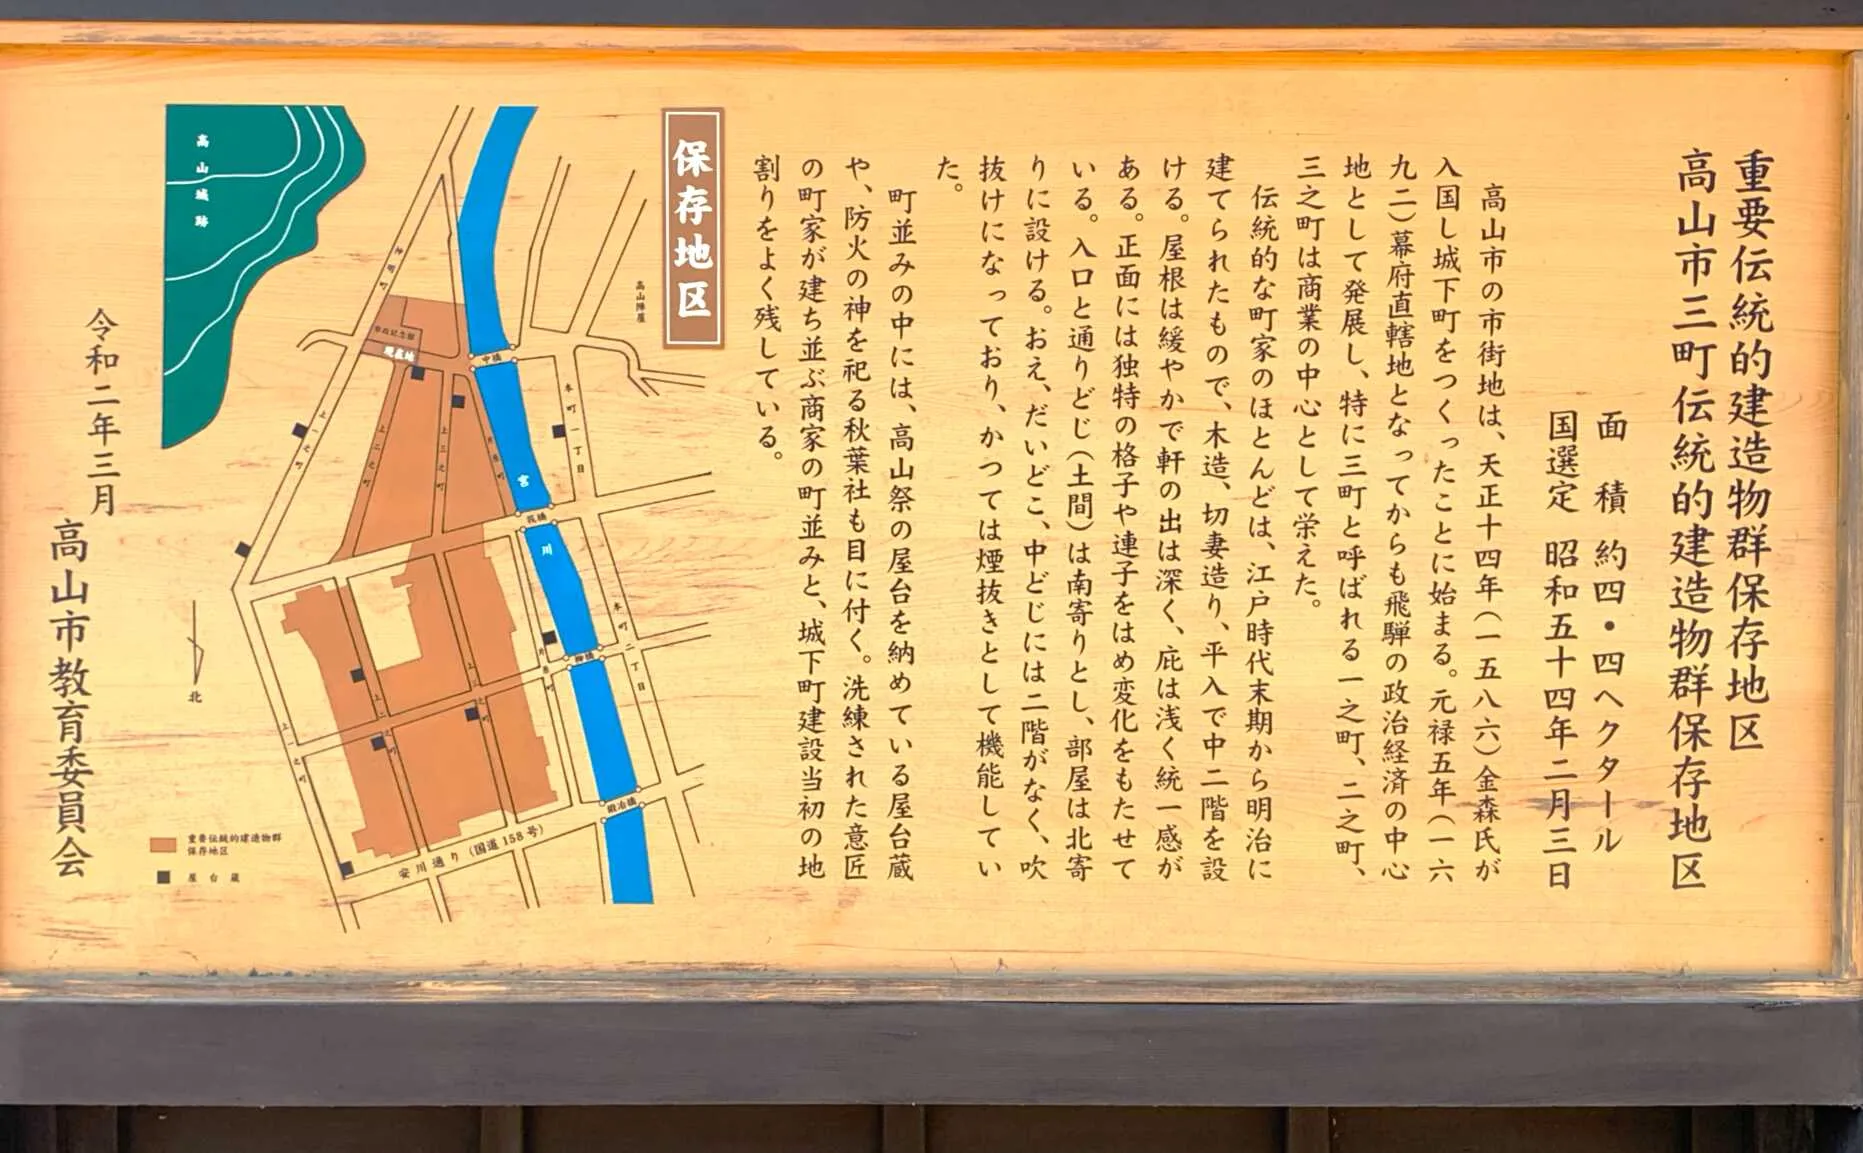 重要伝統的建造物群保存地区
高山市三町伝統的建造物群保存地区
面　積　約四・四ヘクタール
国選定　昭和五十四年二月三日
高山市の市街地は、天正十四年(一五八六)金森氏が
入国し城下町をつくったことに始まる。元禄五年(一六
九二)幕府直轄地となってからも飛騨の政治経済の中心
地として発展し、特に三町と呼ばれる一之町、二之町、
三之町は商業の中心として栄えた。
伝統的な町家のほとんどは、江戸時代末期から明治に
建てられたもので、木造、切妻造り、平入で中二階を設
ける。屋根は緩やかで軒の出は深く、庇は浅く統一感が
ある。正面には独特の格子や連子をはめ変化をもたせて
いる。入口と通りどじ(土間)は南寄りとし、部屋は北寄
りに設ける。おえ、だいどこ、中どじには二階がなく、吹
抜けになっており、かつては煙抜きとして機能してい
た。
町並みの中には、高山祭の屋台を納めている屋台蔵
や、防火の神を祀る秋葉社も目に付く。洗練された意匠
の町家が建ち並ぶ商家の町並みと、城下町建設当初の地
割りをよく残している。
保存地区
高山城跡
高山陣屋
神明町
市政記念館
現在地
中橋
本町一丁目
上一之町
上二之町
上三之町
片原町
宮
川
筏橋
本町二丁目
柳橋
片原町
上一之町
上二之町
上三之町
鍛冶橋
安川通り(国道158号)
北
重要伝統的建造物群
保存地区
屋台蔵
令和二年三月
高山市教育委員会